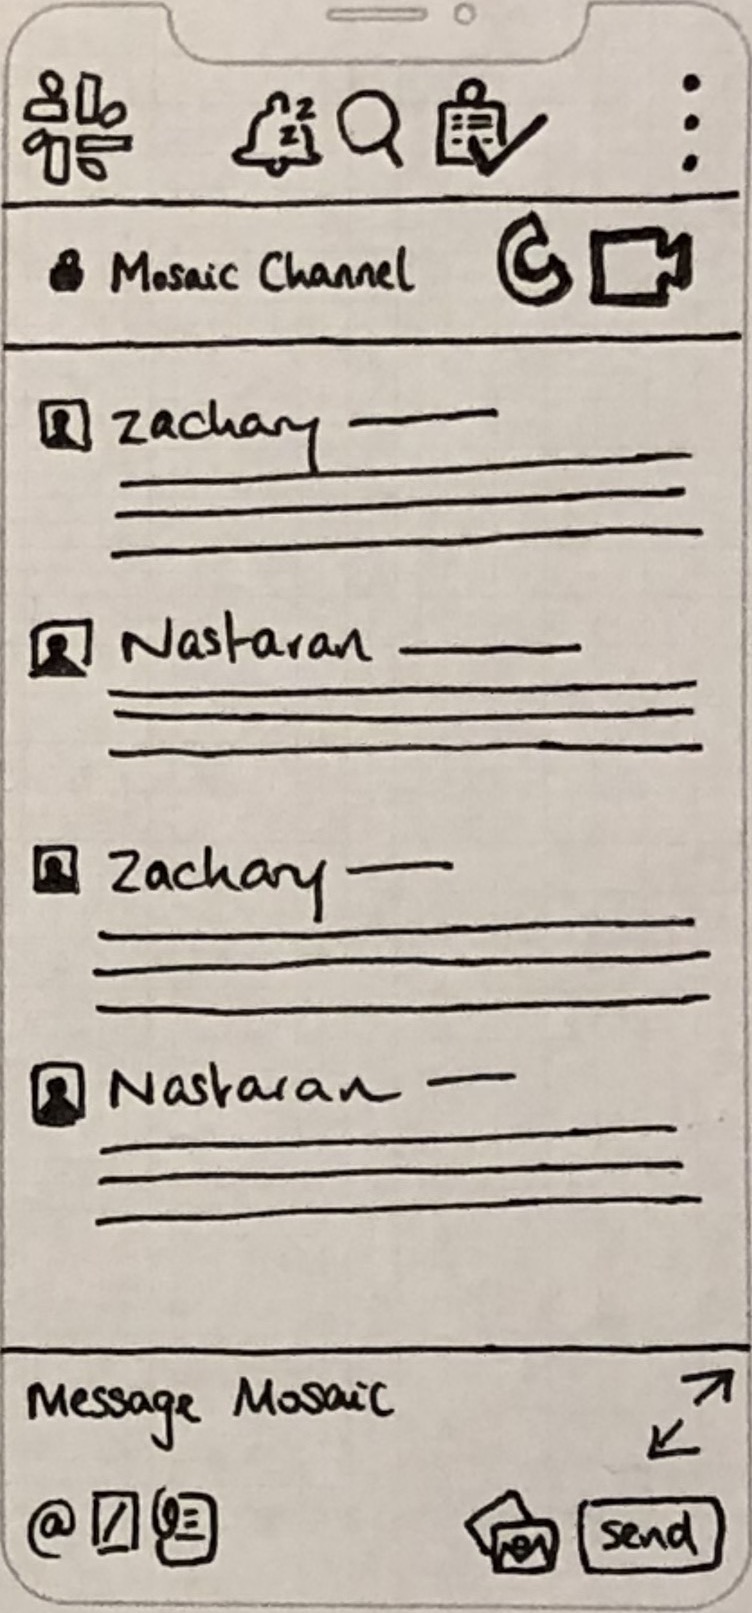 z
z
Mosaic Channel
Zachary
Nastaran
Zachary
Nastaran
Message Mosaic
@
send